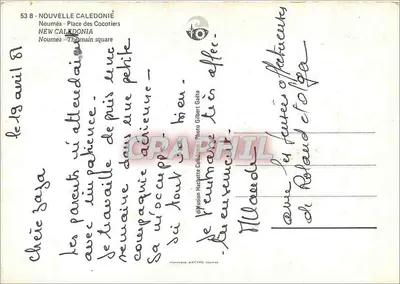 53 B - NOUVELLE CALEDONIE
Nouméa - Place des Cocotiers
NEW CALEDONIA
Nouméa - The main square
le 19 avril 81
Chère Zaza
Les parents m'attendaient
avec impatience.
Je travaille depuis une
semaine dans une petite
compagnie aérienne -
Sa m'occupe -
Ici tout va bien -
Je t'embrasse très affec-
-tueusement.
avec les pensées affectueuses
de Roland et Olga
Diffusion Hachette Calédonie - Photo Gilbert Gaïta
CPAPHIL